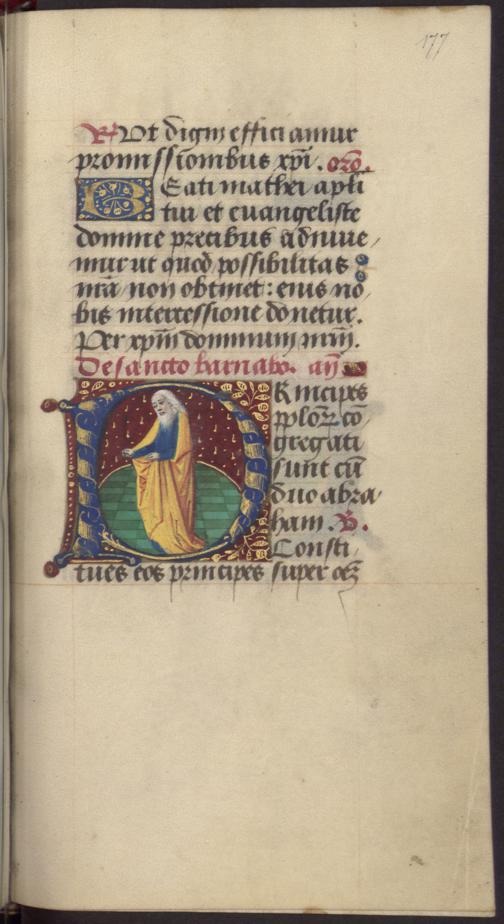 177
R Ut digni efficiamur
promissionibus xpi. orō.
Beati mathei apłi
tui et euangeliste
domine precibus adiuue/
mur ut quod possibilitas
nrā non obtinet: eius no/
bis intercessione donetur.
Per xpm dominum nrm.
De sancto barnaba. añ
Rincipes
pploꝝ cō/
gregati
sunt cū
duo abra/
ham. V.
Consti/
tues eos principes super oēʒ